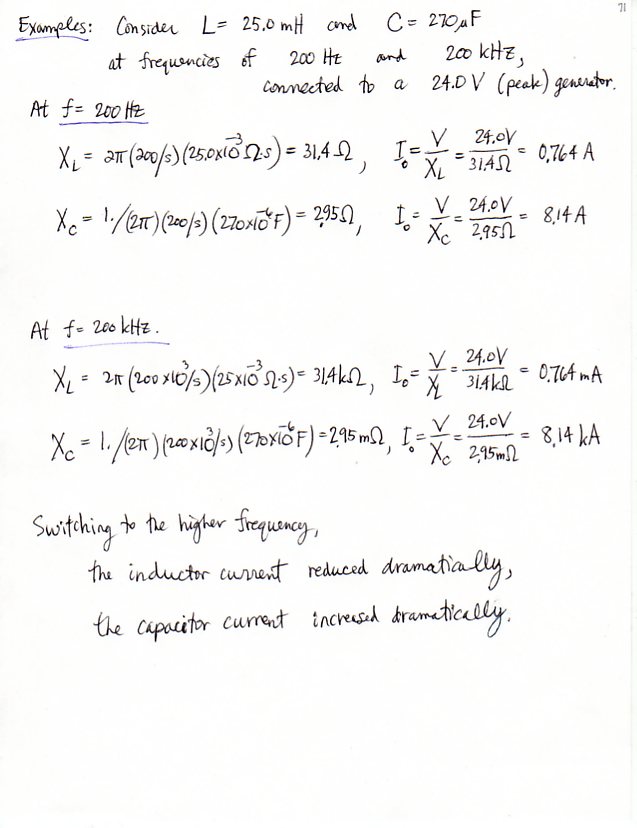 71
Examples: Consider L = 25.0 mH and C = 270μF
at frequencies of 200 Hz and 200 kHz,
connected to a 24.0 V (peak) generator.
At f = 200 Hz
X_L = 2π(200/s)(25.0×10⁻³ Ω·s) = 31.4 Ω, I₀ = V/X_L = 24.0V/31.4Ω = 0.764 A
X_C = 1./(2π)(200/s)(270×10⁻⁶ F) = 2.95Ω, I₀ = V/X_C = 24.0V/2.95Ω = 8.14 A
At f = 200 kHz.
X_L = 2π(200×10³/s)(25×10⁻³ Ω·s) = 31.4kΩ, I₀ = V/X_L = 24.0V/31.4kΩ = 0.764 mA
X_C = 1./(2π)(200×10³/s)(270×10⁻⁶ F) = 2.95 mΩ, I₀ = V/X_C = 24.0V/2.95mΩ = 8.14 kA
Switching to the higher frequency,
the inductor current reduced dramatically,
the capacitor current increased dramatically.